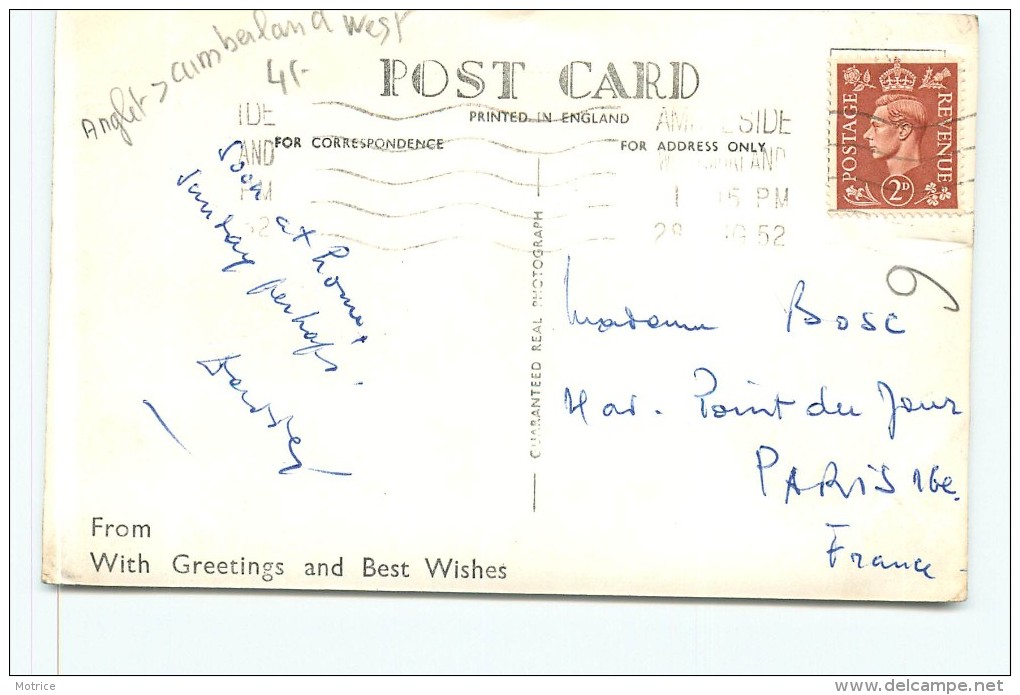 Anglet > Cumberland West
4F
POST CARD
PRINTED IN ENGLAND
FOR CORRESPONDENCE
FOR ADDRESS ONLY
IDE
AND
PM
52
AM SIDE
AND
1 15 PM
28 52
POSTAGE REVENUE
2D
Soon at home
Sunday perhaps.
GUARANTEED REAL PHOTOGRAPH
9
Madame BOSC
Point du Jour
PARIS 16e.
France
From
With Greetings and Best Wishes
Motrice
delcampe.net